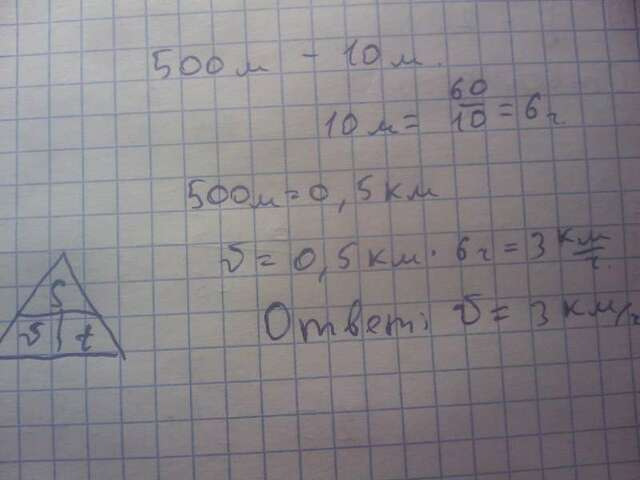 500м - 10м.
10м = 60/10 = 6ч
500м = 0,5км
v = 0,5км · 6ч = 3 км/ч.
S
v t
Ответ: v = 3 км/ч